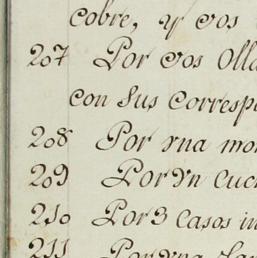 cobre, y dos
207 Por dos Olla
con sus Corresp
208 Por una mo
209 Por Un Cuc
210 Por 3 Casos in
211 Por una